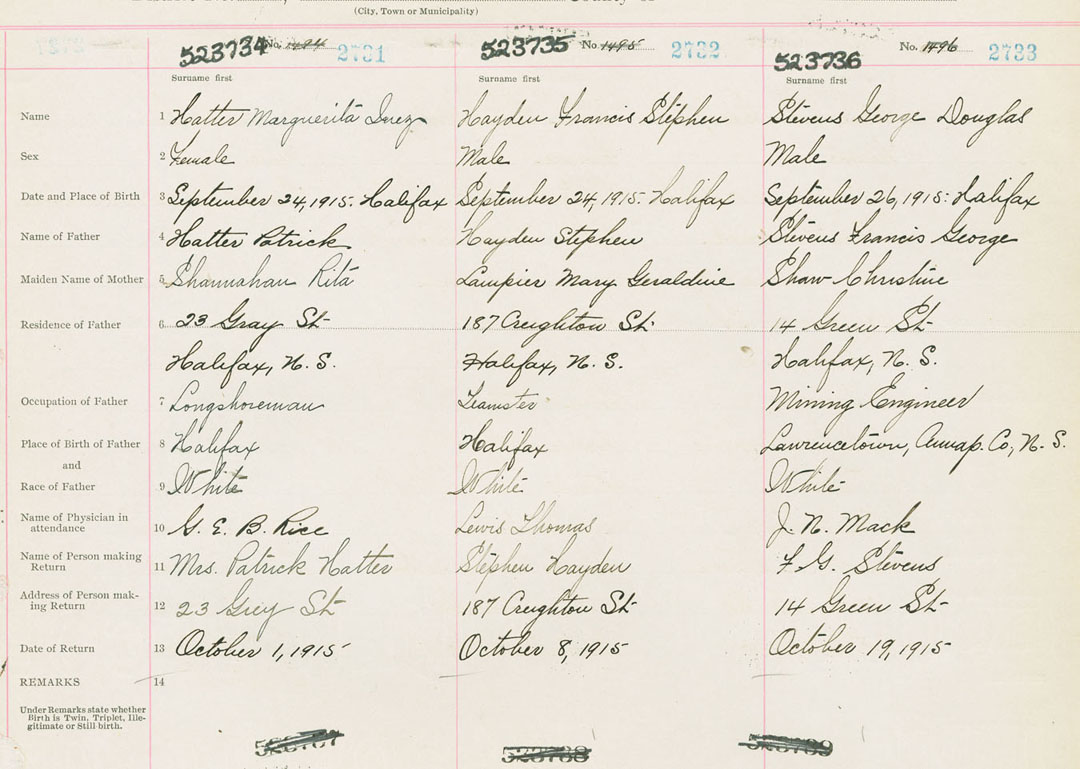 (City, Town or Municipality)
523734 No. 1494 2731 523735 No. 1495 2732 523736 No. 1496 2733
Surname first Surname first Surname first
Name 1 Hatter Marguerita Inez Hayden Francis Stephen Stevens George Douglas
Sex 2 Female Male Male
Date and Place of Birth 3 September 24, 1915. Halifax September 24, 1915. Halifax September 26, 1915: Halifax
Name of Father 4 Hatter Patrick Hayden Stephen Stevens Francis George
Maiden Name of Mother 5 Shannahan Rita Lampier Mary Geraldine Shaw Christine
Residence of Father 6 23 Gray St 187 Creighton St. 14 Green St
Halifax, N. S. Halifax, N. S. Halifax, N. S.
Occupation of Father 7 Longshoreman Teamster Mining Engineer
Place of Birth of Father 8 Halifax Halifax Lawrencetown, Annap. Co, N. S.
and
Race of Father 9 White White White
Name of Physician in
attendance 10 G. E. B. Rice Lewis Thomas J. N. Mack
Name of Person making
Return 11 Mrs. Patrick Hatter Stephen Hayden F. G. Stevens
Address of Person mak-
ing Return 12 23 Grey St 187 Creighton St 14 Green St
Date of Return 13 October 1, 1915 October 8, 1915 October 19, 1915
REMARKS 14
Under Remarks state whether
Birth is Twin, Triplet, Ille-
gitimate or Still birth.
523737 523738 523739